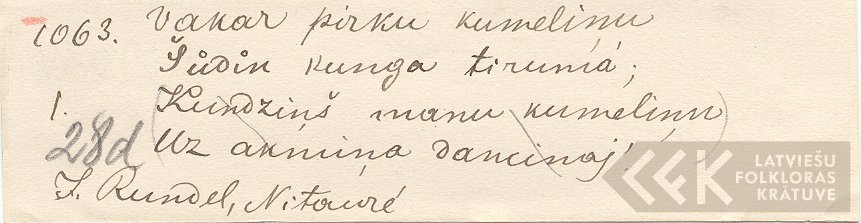 1063. Vakar pirku kumeliņu
Šůdin kunga tirumā;
1. Kundziņš manu kumeliņu
28d Uz akmiņa dancināj
J. Rundel, Nitaurē
LATVIEŠU
FOLKLORAS
KRĀTUVE